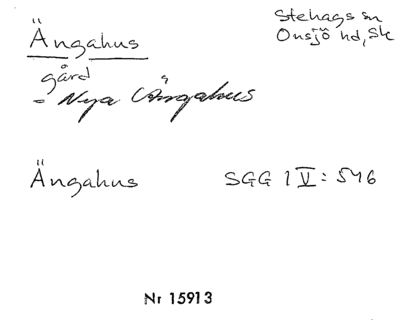 Ängahus
Stehags sn
Onsjö hd, Sk
gård
= Nya Ängahus
Ängahus SGG 1 V: 546
Nr 15913